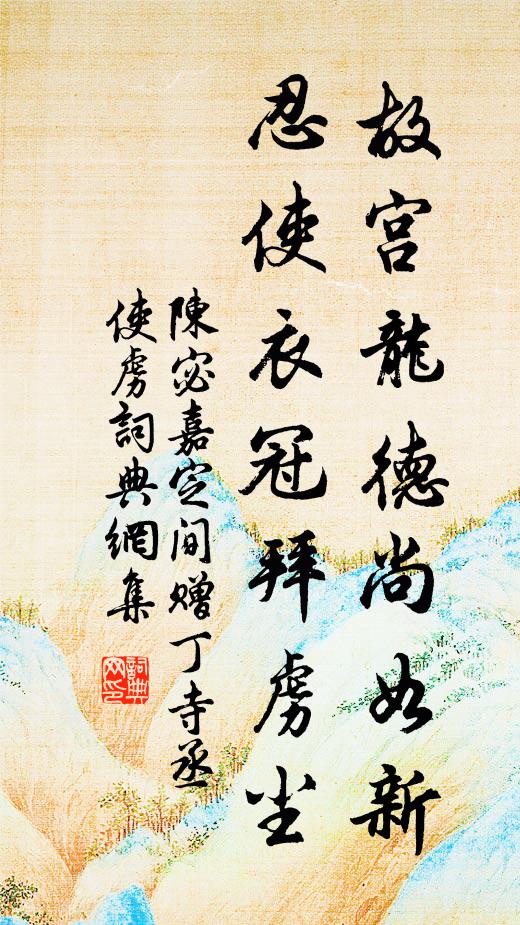 故宫龍德尚如新
忍使衣冠拜虜尘
陳宓嘉定间赠丁寺丞
使虜詞典網集
詞典
网印